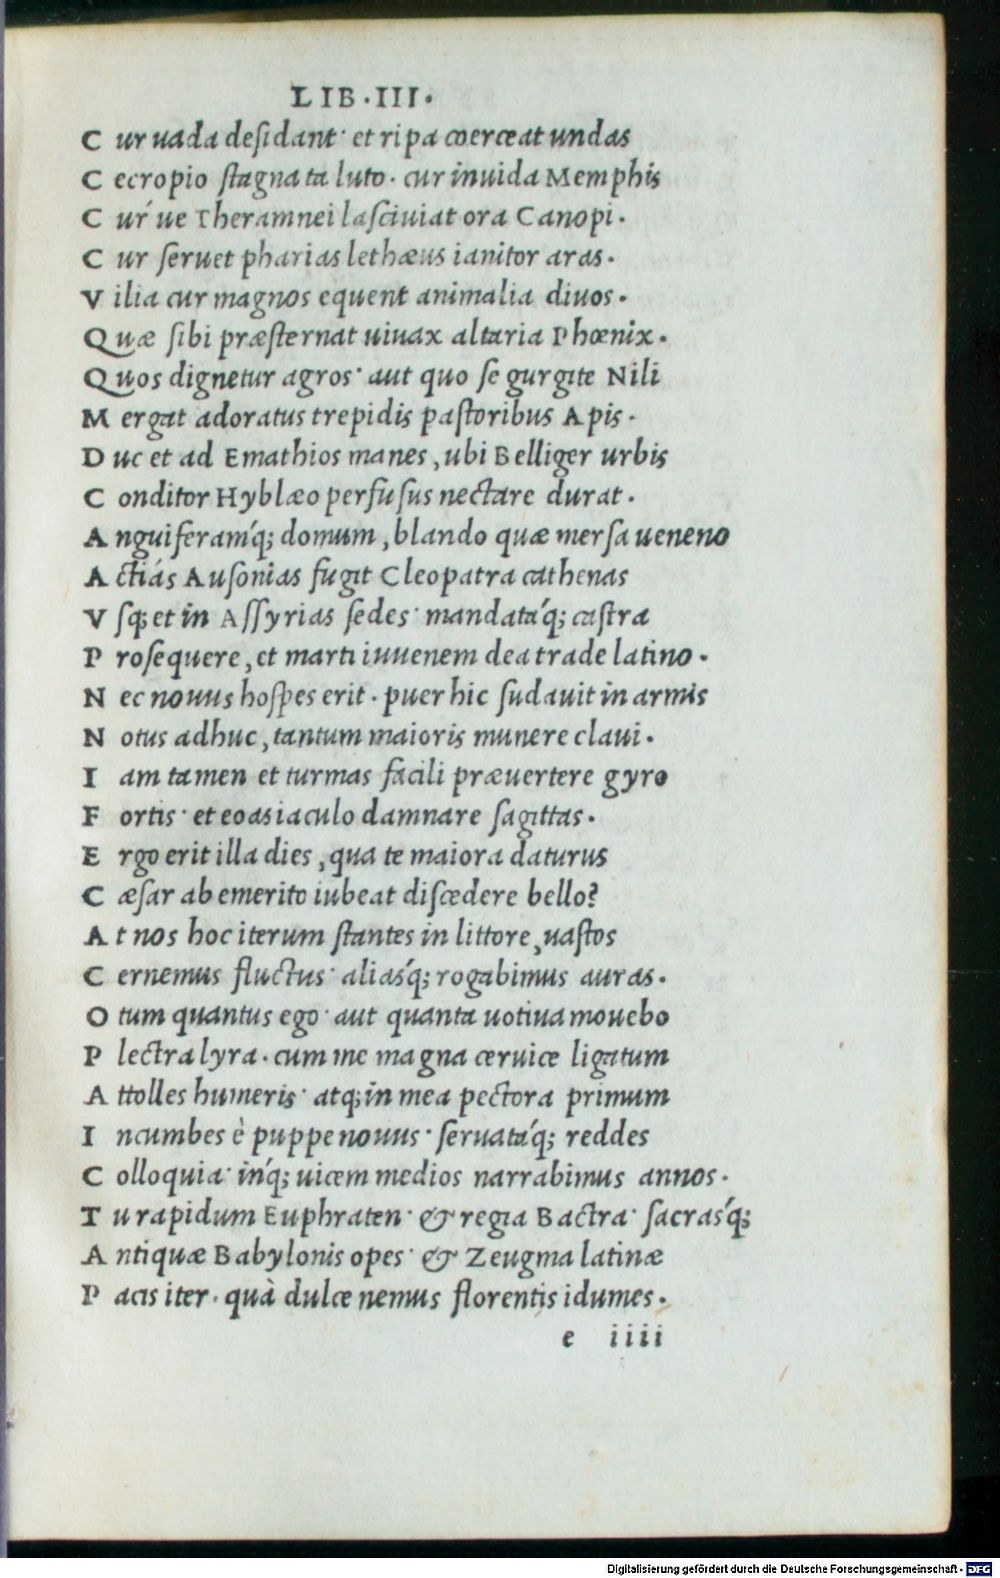 LIB.III.
C ur uada desidant· et ripa coerceat undas
C ecropio stagnata luto. cur inuida Memphis
C ur´ue Theramnei lasciuiat ora Canopi.
C ur seruet pharias lethæus ianitor aras.
V ilia cur magnos equent animalia diuos.
Quæ sibi præsternat uiuax altaria Phœnix.
Quos dignetur agros· aut quo se gurgite Nili
M ergat adoratus trepidis pastoribus Apis.
D uc et ad Emathios manes, ubi Belliger urbis
C onditor Hyblæo perfusus nectare durat.
A nguiferam´q; domum, blando quæ mersa ueneno
A ctiás Ausonias fugit Cleopatra cathenas
V sq; et in Assyrias sedes· mandata´q; castra
P rosequere, et marti iuuenem dea trade latino.
N ec nouus hospes erit. puer hic sudauit in armis
N otus adhuc, tantum maioris munere claui.
I am tamen et turmas facili præuertere gyro
F ortis· et eoas iaculo damnare sagittas.
E rgo erit illa dies, qua te maiora daturus
C æsar ab emerito iubeat discedere bello?
A t nos hoc iterum stantes in littore, uastos
C ernemus fluctus· alias´q; rogabimus auras.
O tum quantus ego· aut quanta uotiua mouebo
P lectra lyra. cum me magna ceruice ligatum
A ttolles humeris· atq; in mea pectora primum
I ncumbes è puppe nouus· seruata´q; reddes
C olloquia· in´q; uicem medios narrabimus annos.
T u rapidum Euphraten· & regia Bactra· sacras´q;
A ntiquæ Babylonis opes· & Zeugma latinæ
P acis iter. quà dulce nemus florentis idumes.
e iiii
Digitalisierung gefördert durch die Deutsche Forschungsgemeinschaft - DFG